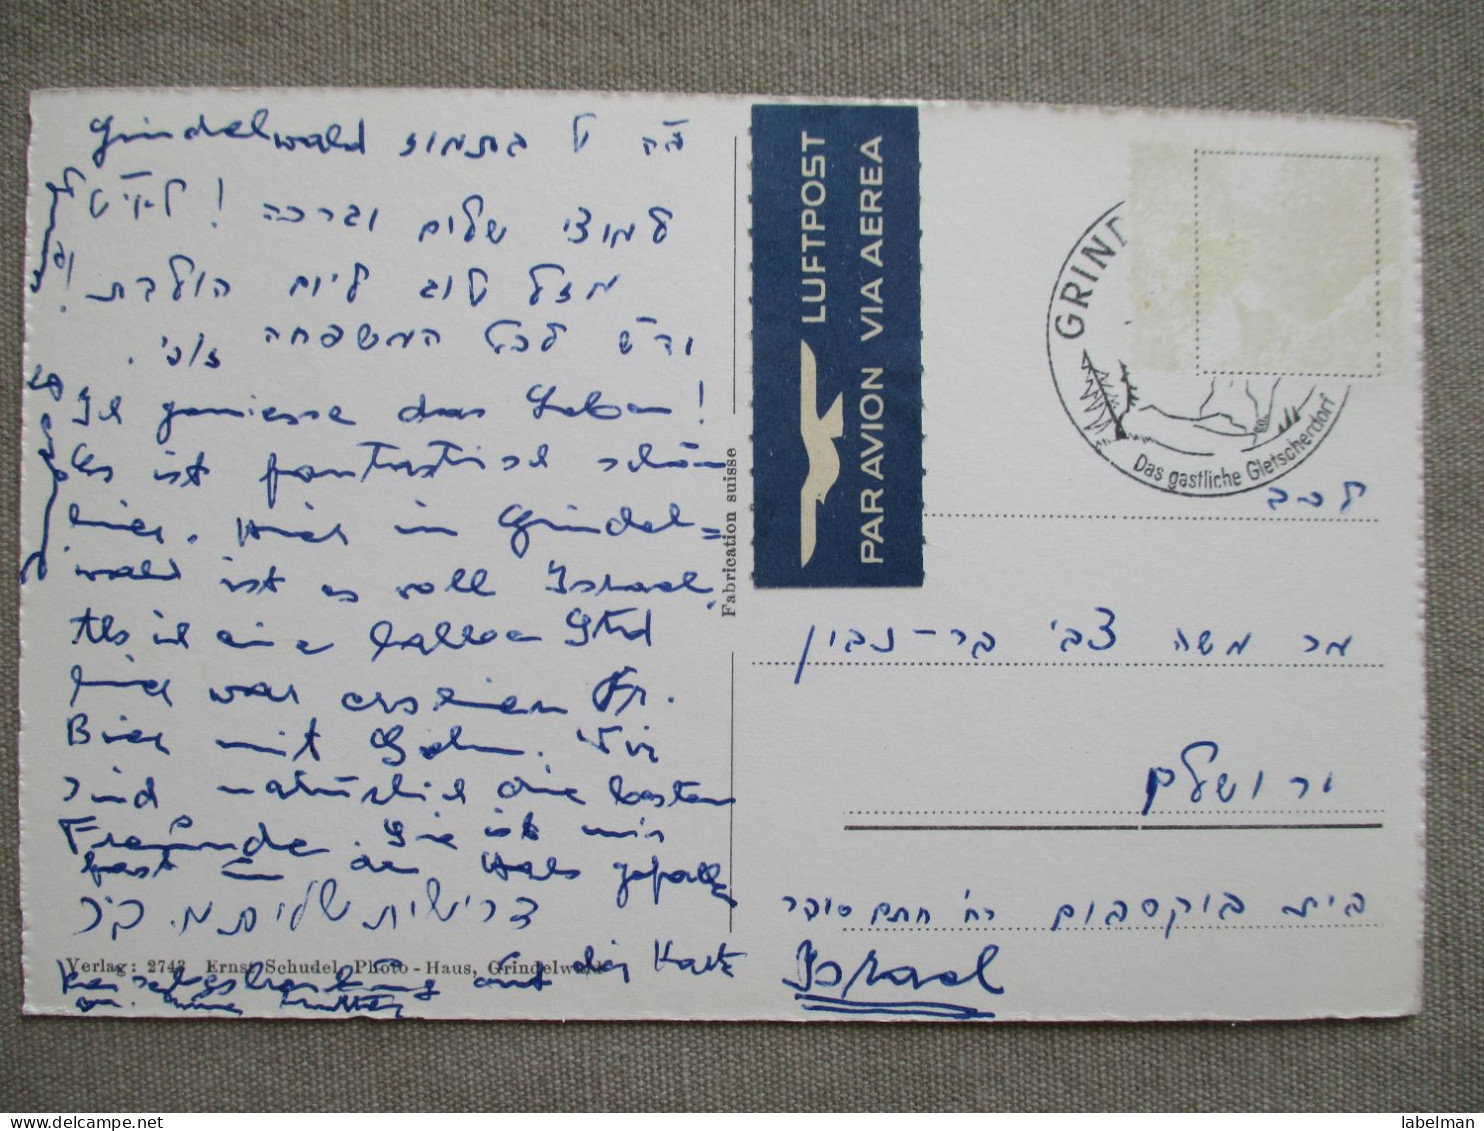 Grindelwald בתמוז
למוצי שלום וברכה !
מזל טוב ליום הולדת
וד״ש לכל המשפחה
Ich geniesse das Leben !
Es ist fantastisch schön
hier. Hier in Grindel=
wald ist es voll Israel.
Als ich eine halbe Std
hier war erschien Fr.
Bier mit Sohn. Wir
sind natürlich die besten
Freunde. Sie ist mir
fast um den Hals gefallen
דרישת שלום
auf die Karte
meine Mutter
Verlag: 2743 Ernst Schudel, Photo-Haus, Grindelwald
Fabrication suisse
LUFTPOST
PAR AVION VIA AEREA
GRIND
Das gastliche Gletscherdorf
לכב
מר משה צבי בר-נבון
ירושלים
בית בוקסבוים רח׳ חתם סופר
Israel
labelman
delcampe.net